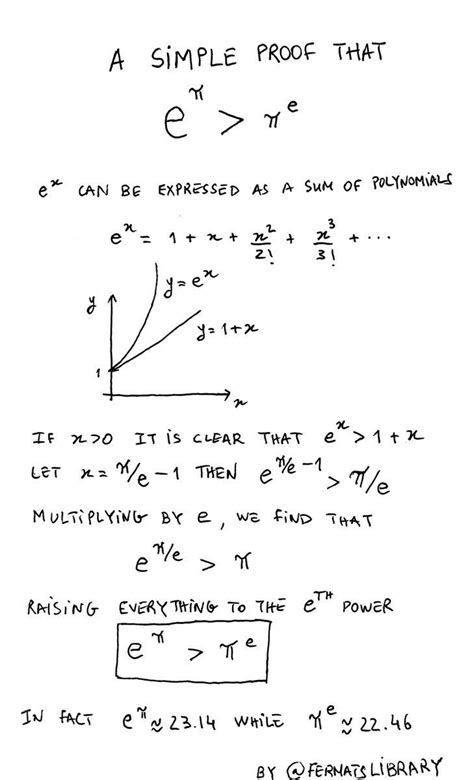 A SIMPLE PROOF THAT
e^π > π^e
e^x CAN BE EXPRESSED AS A SUM OF POLYNOMIALS
e^x = 1 + x + x²/2! + x³/3! + ...
y=e^x
y
y=1+x
1
x
IF x>0 IT IS CLEAR THAT e^x > 1 + x
LET x = π/e - 1 THEN e^(π/e - 1) > π/e
MULTIPLYING BY e, WE FIND THAT
e^(π/e) > π
RAISING EVERYTHING TO THE e^TH POWER
e^π > π^e
IN FACT e^π ≈ 23.14 WHILE π^e ≈ 22.46
BY @FERMATSLIBRARY